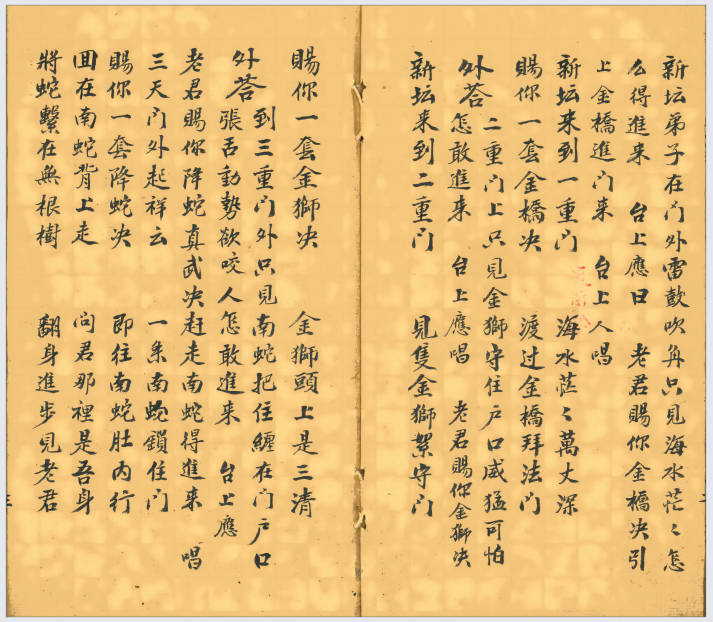 新坛弟子在门外雷鼓吹角只見海水茫〻怎
么得進来 台上應曰 老君賜你金橋决引
上金橋進门来 台上人唱
新坛来到一重门 海水茫〻萬丈深
賜你一套金橋决 渡过金橋拜法门
外荅 二重门上只見金獅守住户口威猛可怕
怎敢進来 台上應唱 老君賜你金獅决
新坛来到二重门 見隻金獅絮守门
賜你一套金獅决 金獅頭上是三清
外荅 到三重门外只見南蛇把住纏在门户口
張舌動勢欲咬人怎敢進来 台上應
老君賜你降蛇真武决赶走南蛇得進来 唱
三天门外起祥云 一条南蛇鎖住门
賜你一套降蛇决 即往南蛇肚内行
囬在南蛇背上走 问君那裡是吾身
將蛇繫在無根樹 翻身進步見老君